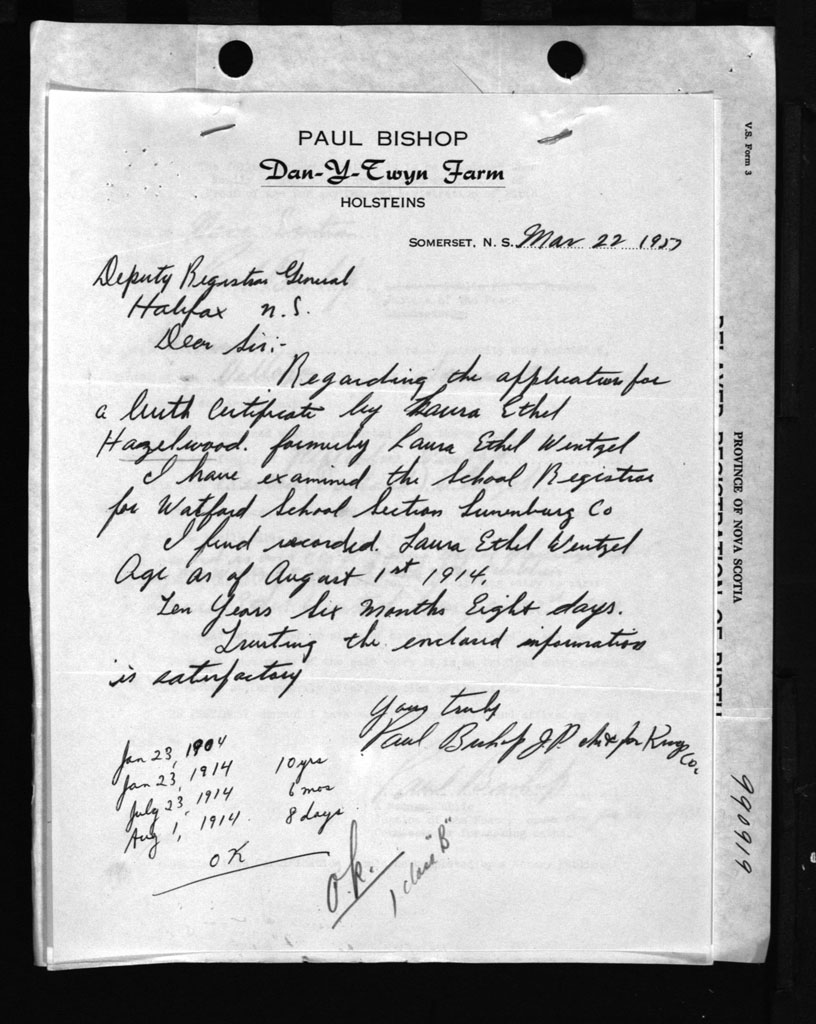 PAUL BISHOP
Dan-Y-Twyn Farm
HOLSTEINS
SOMERSET, N. S. Mar 22 1957
Deputy Registrar General
Halifax N.S.
Dear Sir:-
Regarding the application for
a birth Certificate by Laura Ethel
Hazelwood. formerly Laura Ethel Wentzel
I have examined the School Registrar
for Watford School Section Lunenburg Co
I find recorded. Laura Ethel Wentzel
Age as of August 1st 1914.
Ten Years Six Months Eight days.
Trusting the enclosed information
is satisfactory
Yours truly
Paul Bishop J.P. for Kings Co.
Jan 23, 1904
Jan 23, 1914 10 yrs
July 23, 1914 6 mos
Aug 1, 1914 8 days
OK
O.K.
1 class "B"
V.S. Form 3
PROVINCE OF NOVA SCOTIA
DELAYED REGISTRATION OF BIRTH
990919